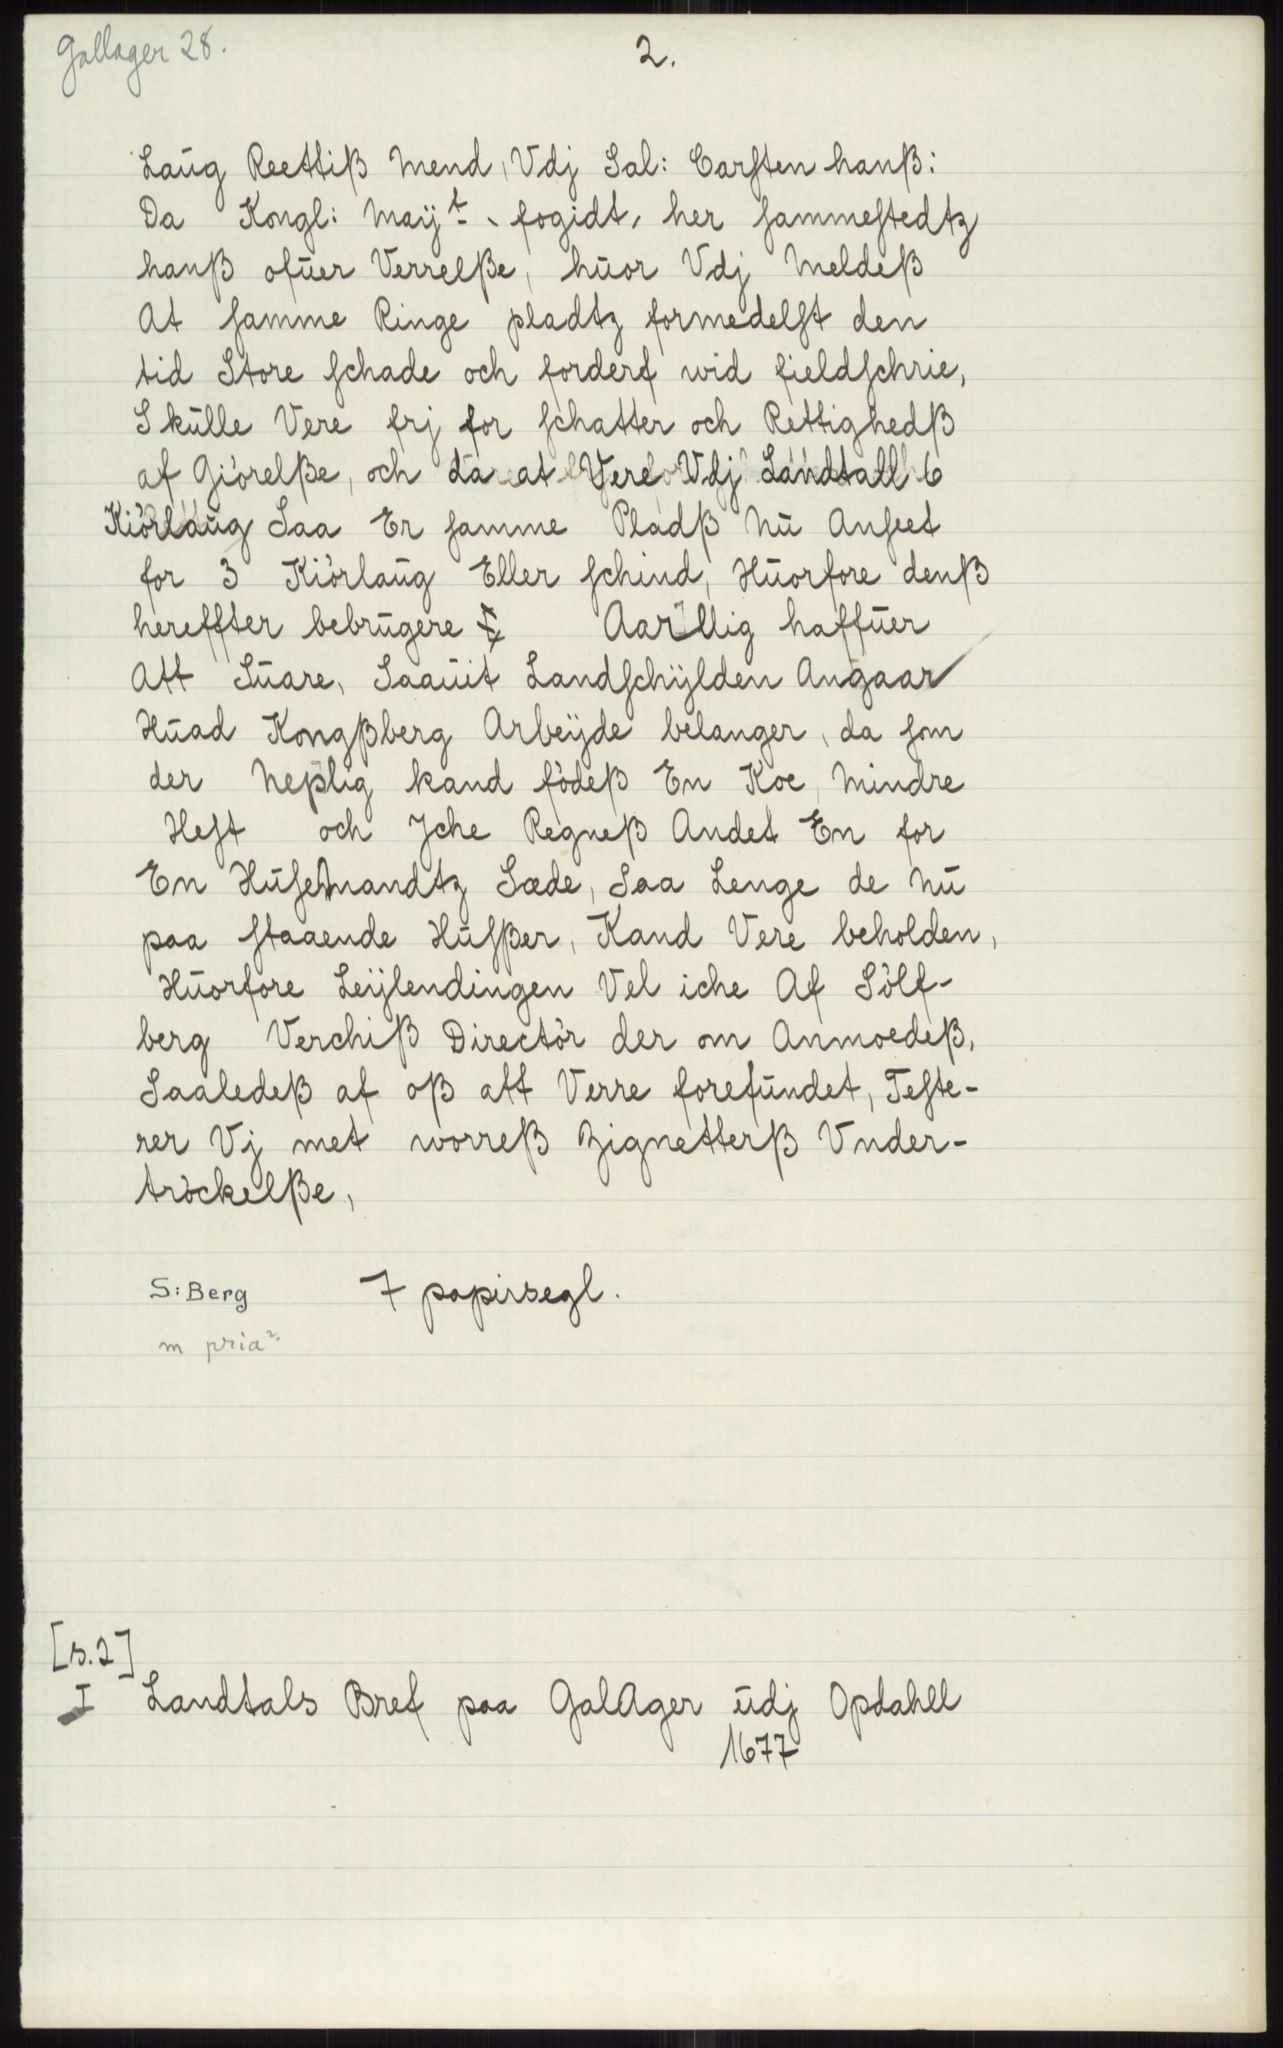 Gallager 28.
2.
Laug Reettiß Mend, Vdj Sal: Carsten hanß:
Da Kongl: Maÿt fogidt, her sammestedtz
hanß ofuer Verrelße, huor Vdj Meldeß
At samme Ringe pladtz formedelst den
tid Store schade och forderf wid fieldschrie,
Skulle Vere frj for schatter och Rettighedß
af Giörelße, och da at Vere Vdj Landtall 6
Kiörlaug Saa Er samme Pladß Nu Anseet
for 3 Kiörlaug Eller schind, Huorfore denß
hereffter bebrugere Aarllig haffuer
Att Suare, Saauit Landschÿlden Angaar
Huad Kongßberg Arbeÿde belanger, da som
der Neplig kand födeß En Koe, Mindre
Hest och Jche Regneß Andet En for
En Husemandtz Sæde, Saa Lenge de Nu
paa staaende Hußer, Kand Vere beholden,
Huorfore Leÿlendingen Vel iche Af Sölf-
berg Verchiß Directör der om Anmoedeß,
Saaledeß af oß att Verre forefundet, Teste-
rer Vj met worreß Zignetterß Vnder-
tröckelße,
S: Berg 7 papirsegl.
m pria
[s. 2]
I Landtals Bref paa GalAger udj Opdahll
1677